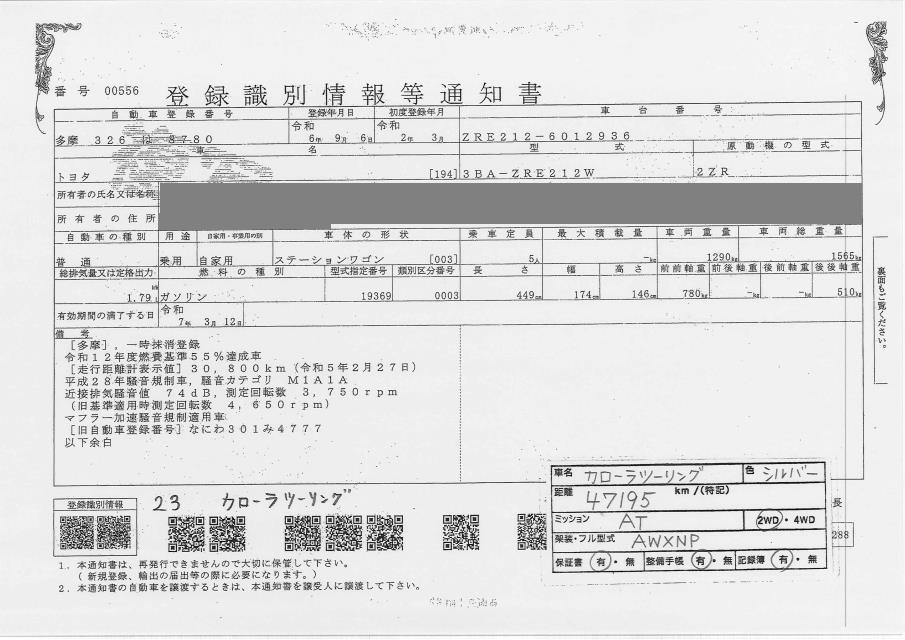 番号 00556 登録識別情報等通知書
自動車登録番号 登録年月日 初度登録年月 車台番号
多摩 326 は 8780 令和 6年 9月 6日 令和 2年 3月 ZRE212-6012936
車名 型式 原動機の型式
トヨタ [194] 3BA-ZRE212W 2ZR
所有者の氏名又は名称
所有者の住所
自動車の種別 用途 自家用・事業用の別 車体の形状 乗車定員 最大積載量 車両重量 車両総重量
普通 乗用 自家用 ステーションワゴン [003] 5人 -kg 1290kg 1565kg
総排気量又は定格出力 燃料の種別 型式指定番号 類別区分番号 長さ 幅 高さ 前前軸重 前後軸重 後前軸重 後後軸重
1.79 ガソリン 19369 0003 449cm 174cm 146cm 780kg -kg -kg 510kg
有効期間の満了する日 令和 7年 3月 12日
備考
[多摩],一時抹消登録
令和12年度燃費基準55%達成車
[走行距離計表示値]30,800km(令和5年2月27日)
平成28年騒音規制車,騒音カテゴリ M1A1A
近接排気騒音値 74dB,測定回転数 3,750rpm
(旧基準適用時測定回転数 4,650rpm)
マフラー加速騒音規制適用車
[旧自動車登録番号]なにわ301み4777
以下余白
裏面もご覧ください。
車名 カローラツーリング 色 シルバー
距離 47195 km/(特記)
ミッション AT 2WD・4WD
架装・フル型式 AWXNP
保証書 有・無 整備手帳 有・無 記録簿 有・無
長
288
登録識別情報 23 カローラツーリング
1.本通知書は、再発行できませんので大切に保管して下さい。
(新規登録、輸出の届出等の際に必要になります。)
2.本通知書の自動車を譲渡するときは、本通知書を譲受人に譲渡して下さい。